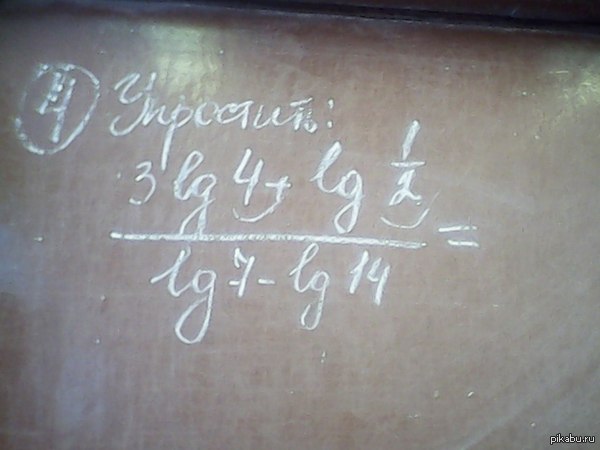 4 Упростить:
3 lg 4 + lg 1/2
lg 7 - lg 14 =
pikabu.ru